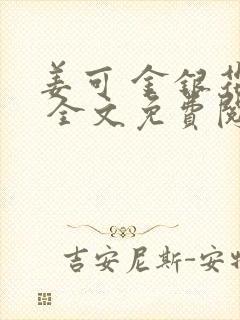 姜可 金银花
全文免費閱
吉安尼斯-安特